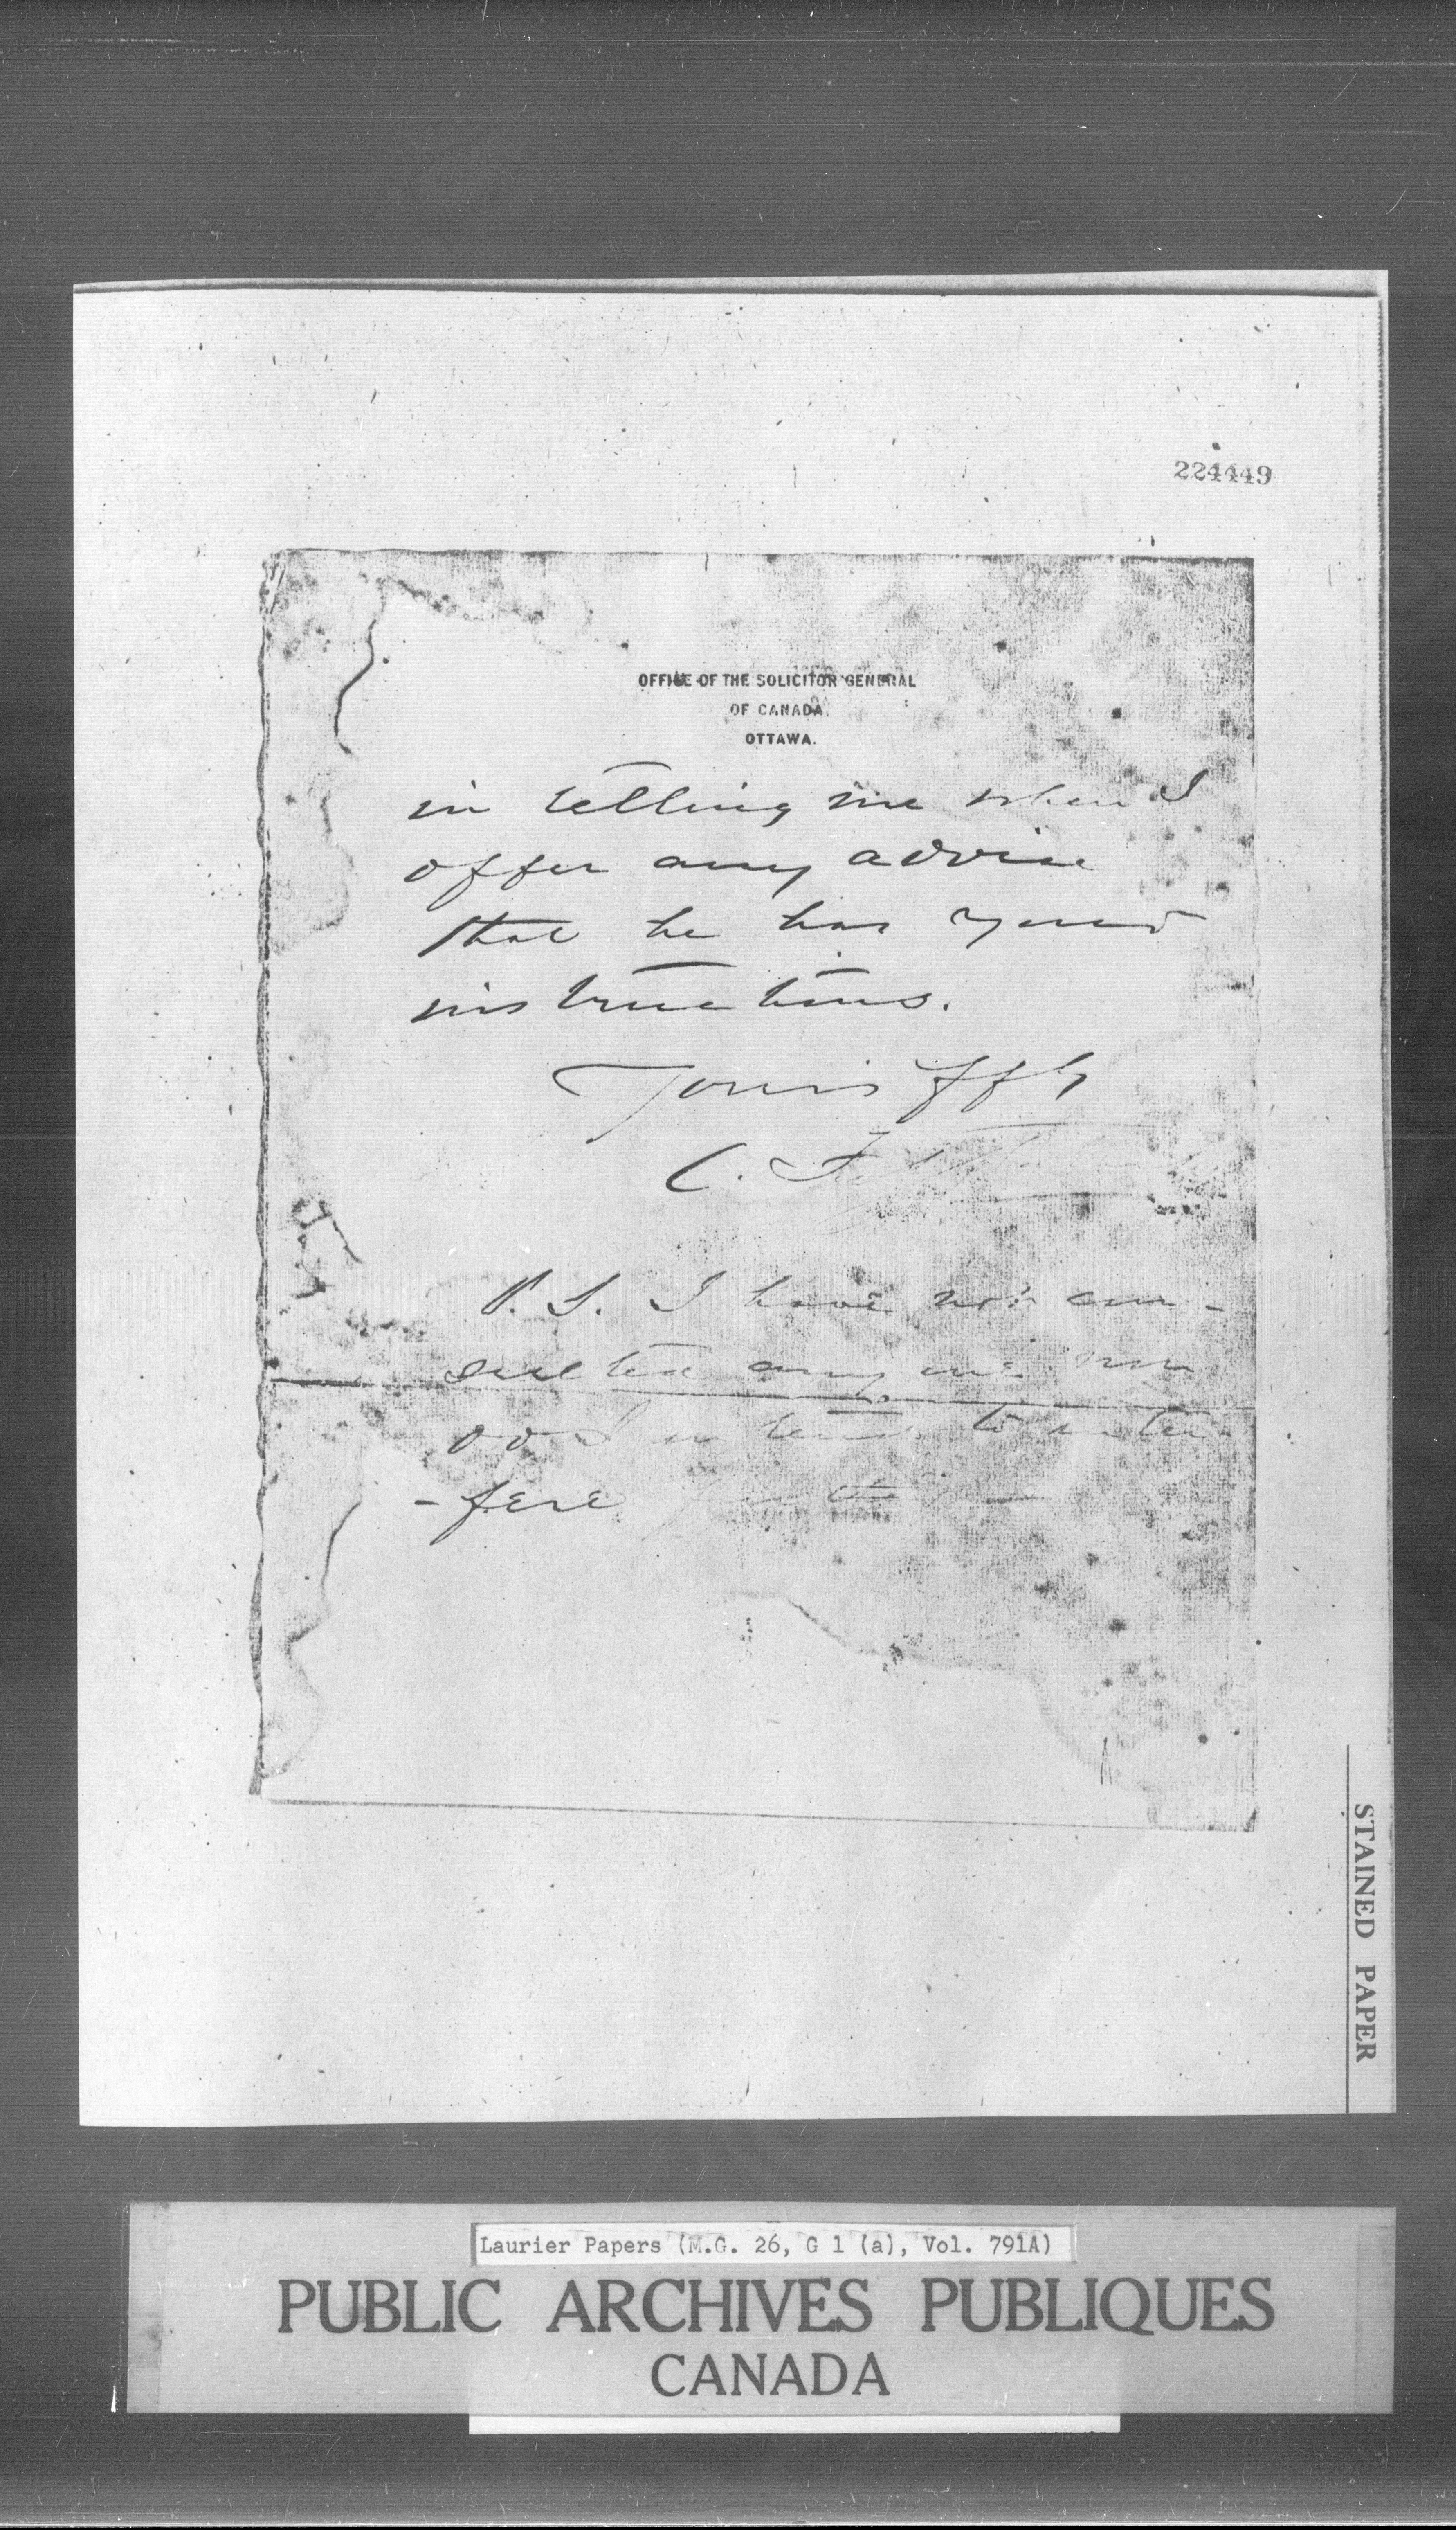 224449
OFFICE OF THE SOLICITOR GENERAL
OF CANADA.
OTTAWA.
in telling me when I
offer any advice
that he has your
instructions.
Yours ffly
C. Fitzpatrick
P. S. I have not con-
sulted any one nor
do I intend to inter
- fere further
STAINED PAPER
Laurier Papers (M.G. 26, G 1 (a), Vol. 791A)
PUBLIC ARCHIVES PUBLIQUES
CANADA